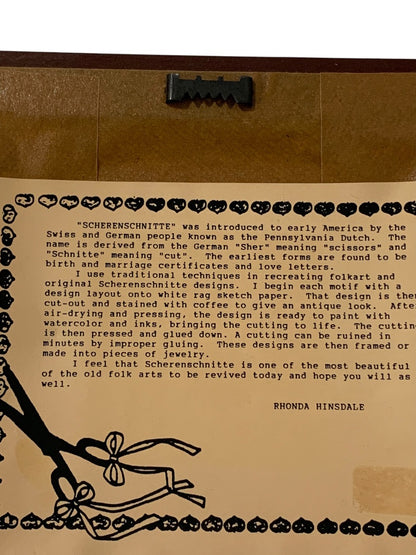 "SCHERENSCHNITTE" was introduced to early America by the
Swiss and German people known as the Pennsylvania Dutch.  The
name is derived from the German "Sher" meaning "scissors" and
"Schnitte" meaning "cut".  The earliest forms are found to be
birth and marriage certificates and love letters.
I use traditional techniques in recreating folkart and
original Scherenschnitte designs.  I begin each motif with a
design layout onto white rag sketch paper.  That design is then
cut-out and stained with coffee to give an antique look.  After
air-drying and pressing, the design is ready to paint with
watercolor and inks, bringing the cutting to life.  The cutting
is then pressed and glued down.  A cutting can be ruined in
minutes by improper gluing.  These designs are then framed or
made into pieces of jewelry.
I feel that Scherenschnitte is one of the most beautiful
of the old folk arts to be revived today and hope you will as
well.
RHONDA HINSDALE